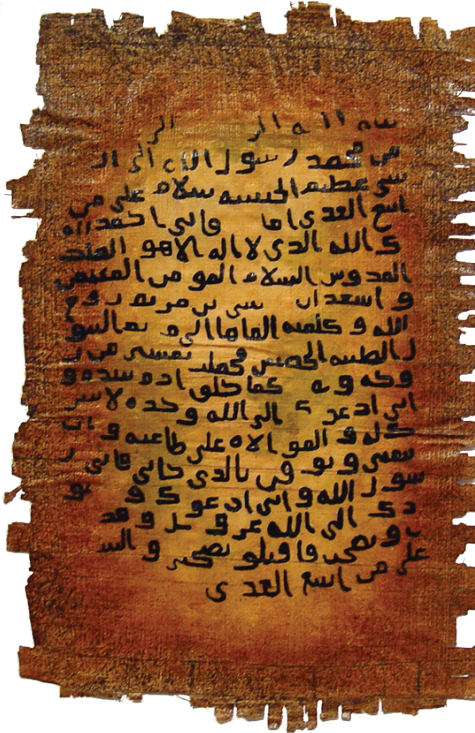 بسم الله الر الر
من محمد رسول الله الى ال
سى عظيم الحبشه سلام على من
اتبع الهدى اما فانى احمد
ك الله الذى لا اله الا هو الملك
القدوس السلام المومن المهيمن
و اشهد ان سى بن مريم روح
الله و كلمته القاها الى م يم البتو
ل الطيبه الحصينه فحملت بعيسى من ر
وحه و ه كما خلق ادم بيده و
انى ادعو ك الى الله وحده لا شر
ك له و الموالاه على طاعته و ان
تتبعنى و تو من بالذى جانى فانى ر
سول الله و انى ادعو ك و نو
دك الى الله عز و جل و قد
ب و نصحت فاقبلو نصحى و الس
على من اتبع الهدى